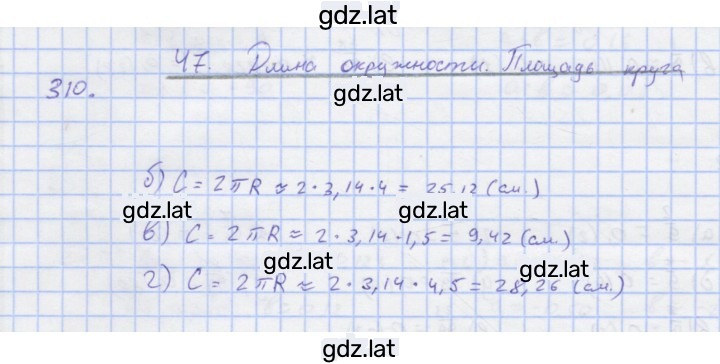 gdz.lat
47. Длина окружности. Площадь круга
310.
gdz.lat
б) C = 2πR ≈ 2·3,14·4 = 25.12 (см.)
gdz.lat gdz.lat
в) C = 2πR ≈ 2·3,14·1,5 = 9,42 (см.)
gdz.lat gdz.lat
г) C = 2πR ≈ 2·3,14·4,5 = 28,26 (см.)
gdz.lat